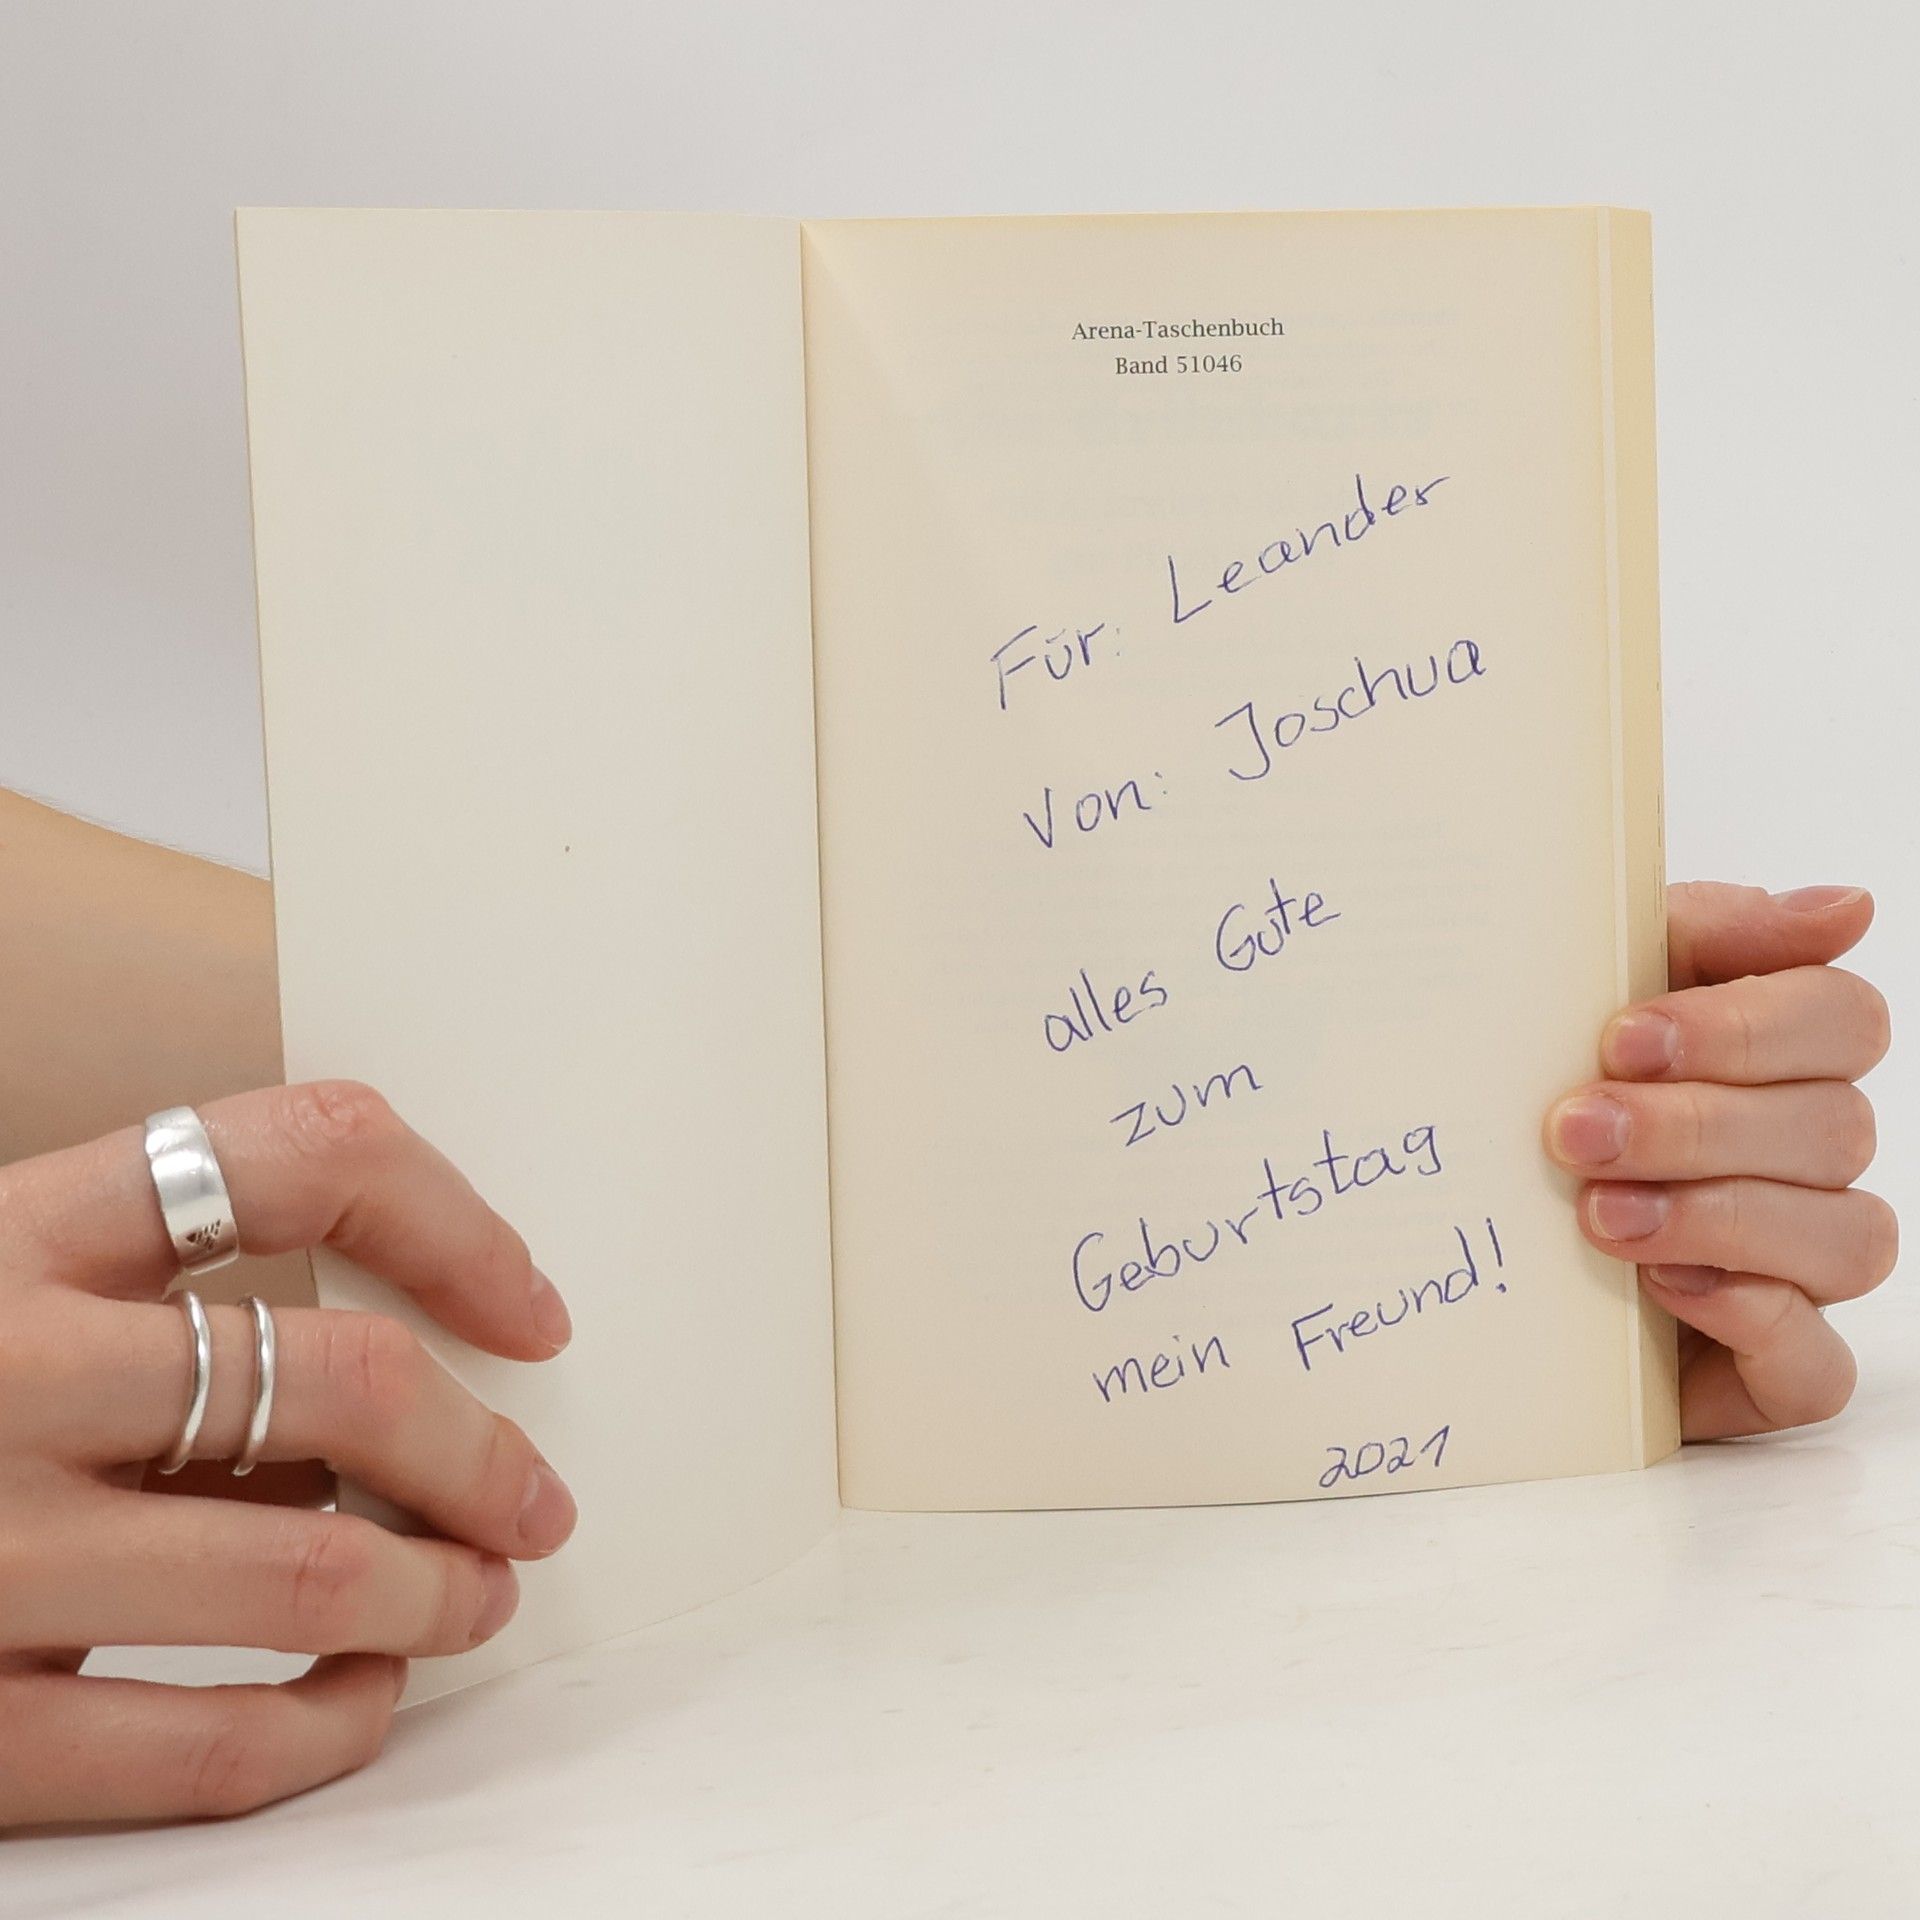 Arena-Taschenbuch
Band 51046
Für: Leander
von: Joschua
alles Gute
zum
Geburtstag
mein Freund!
2021